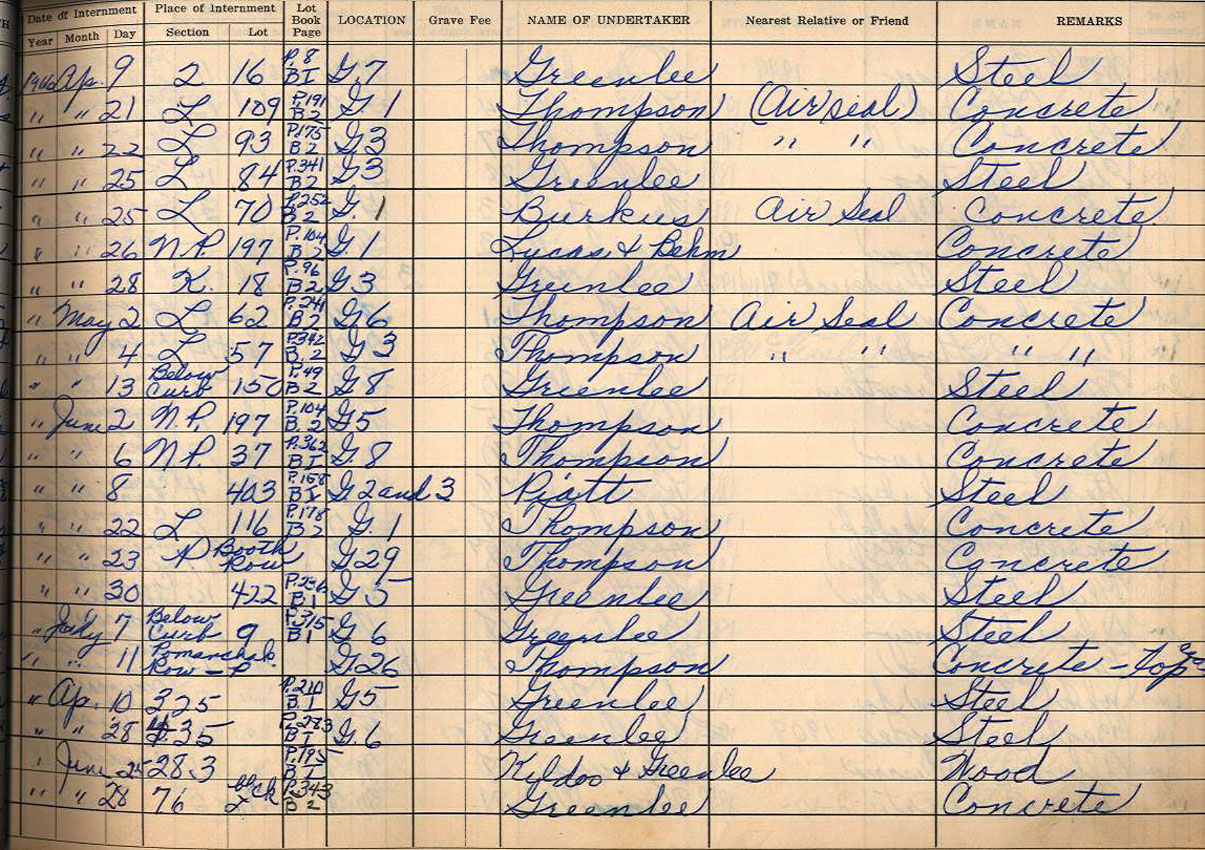 Date of Internment Place of Internment Lot Book Page LOCATION Grave Fee NAME OF UNDERTAKER Nearest Relative or Friend REMARKS
Year Month Day Section Lot
1966 Ap. 9 2 16 P. 8 B I G. 7 Greenlee Steel
" " 21 L 109 P. 191 B 2 G. 1 Thompson (Air seal) Concrete
" " 22 L 93 P. 175 B 2 G 3 Thompson " " Concrete
" " 25 L 84 P. 341 B 2 G 3 Greenlee Steel
" " 25 L 70 P. 252 B. 2 G. 1 Burkus Air Seal Concrete
" " 26 N.P. 197 P. 104 B. 2 G. 1 Lucas & Behm Concrete
" " 28 K. 18 P. 96 B 2 G 3 Greenlee Steel
" May 2 L 62 P. 241 B 2 G 6 Thompson Air Seal Concrete
" " 4 L 57 P. 342 B. 2 G 3 Thompson " " " "
" " 13 Below Curb 150 P. 49 B 2 G 8 Greenlee Steel
" June 2 N.P. 197 P. 104 B. 2 G 5 Thompson Concrete
" " 6 N.P. 37 P. 362 B I G 8 Thompson Concrete
" " 8 403 P. 158 B I G 2 and 3 Piatt Steel
" " 22 L 116 P. 178 B 2 G. 1 Thompson Concrete
" " 23 P Booth Row G 29 Thompson Concrete
" " 30 422 P. 236 B 1 G 5 Greenlee Steel
" July 7 Below Curb 9 P. 315 B 1 G. 6 Greenlee Steel
" " 11 Row - P G 26 Thompson Concrete - Top
" Ap. 10 325 P. 210 B 1 G 5 Greenlee Steel
" " 28 35 P. 283 B I G. 6 Greenlee Steel
" June 25 283 P. 195 B. I Kildoo & Greenlee Wood
" " 28 76 blck L P. 343 B 2 Greenlee Concrete